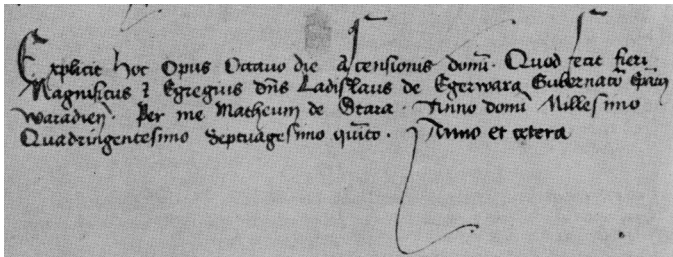 Explicit hoc opus Octavo die Ascensionis domī. Quod fecit fieri
Magnificus ⁊ Egregius dn̄s Ladislaus de Egerwara Gubernator
waradien̄. Per me Matheum de Anno domī Millesimo
Quadringentesimo Septuagesimo quīto. Anno et cetera